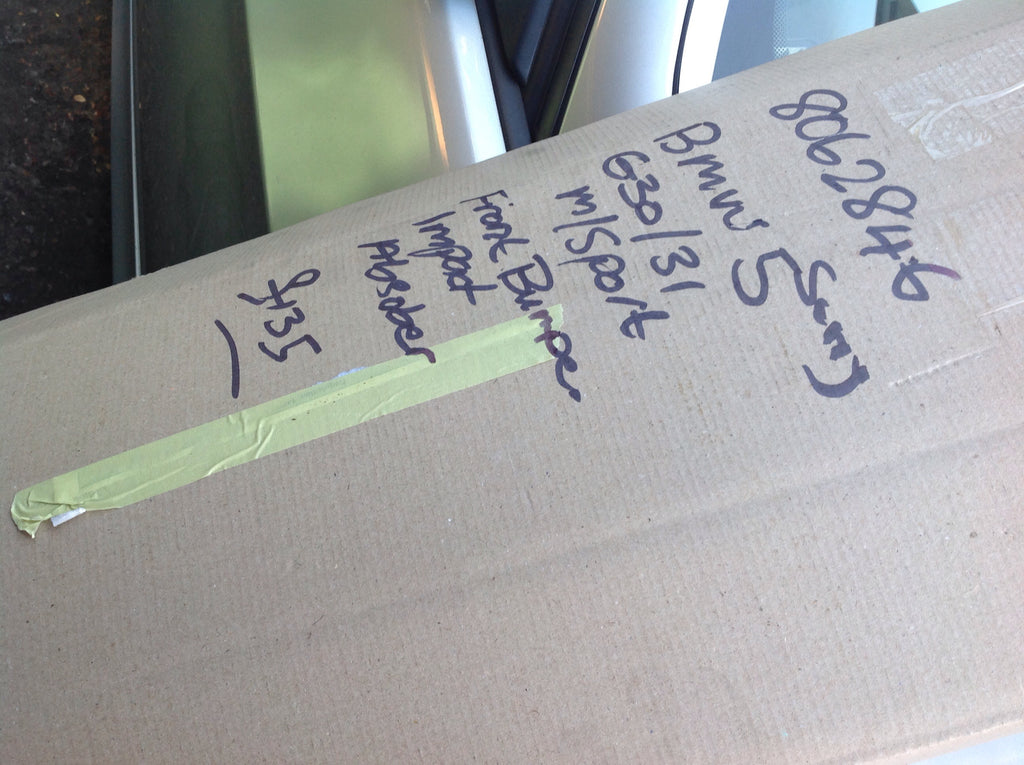 8062846
Bmw 5 Serires
G30/31
m/Sport
Front Bumper
Impact
Absober
£135